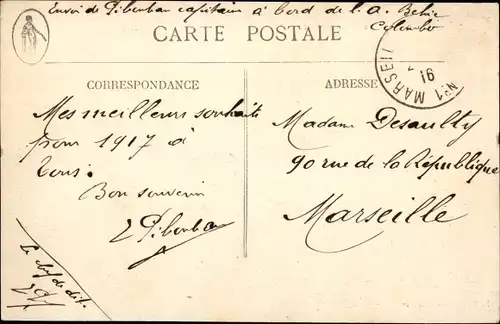 Envoi de Pibouban capitaine à bord de l. a. Behic
Colombo
CARTE POSTALE
N°1 MARSEI
16
CORRESPONDANCE
ADRESSE
Mes meilleurs souhaits
pour 1917 à
tous.
Bon souvenir
Madame Desaulty
90 rue de la République
Marseille
Le chef de dét.